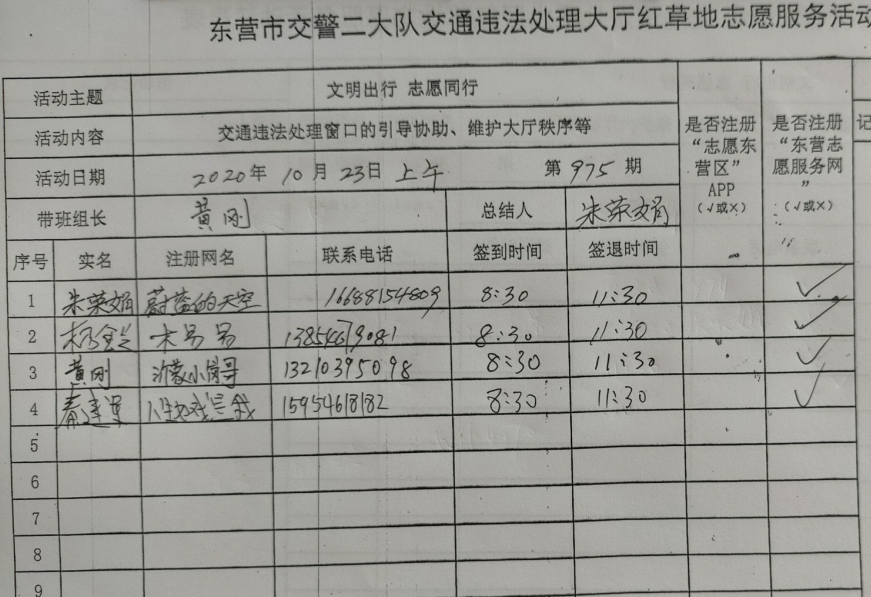 东营市交警二大队交通违法处理大厅红草地志愿服务活动
活动主题 文明出行 志愿同行
活动内容 交通违法处理窗口的引导协助、维护大厅秩序等
活动日期 2020年 10月 23日 上午 第 975 期
带班组长 黄刚 总结人 朱荣娟
是否注册“志愿东营区”APP（√或×）
是否注册“东营志愿服务网”（√或×）
记
序号 实名 注册网名 联系电话 签到时间 签退时间
1 朱荣娟 蔚蓝的天空 16688154809 8:30 11:30 ✓
2 木易易 8:30 11:30 ✓
3 黄刚 沂蒙小 13210395098 8:30 11:30 ✓
4 秦建军 15954618182 8:30 11:30 ✓
5
6
7
8
9